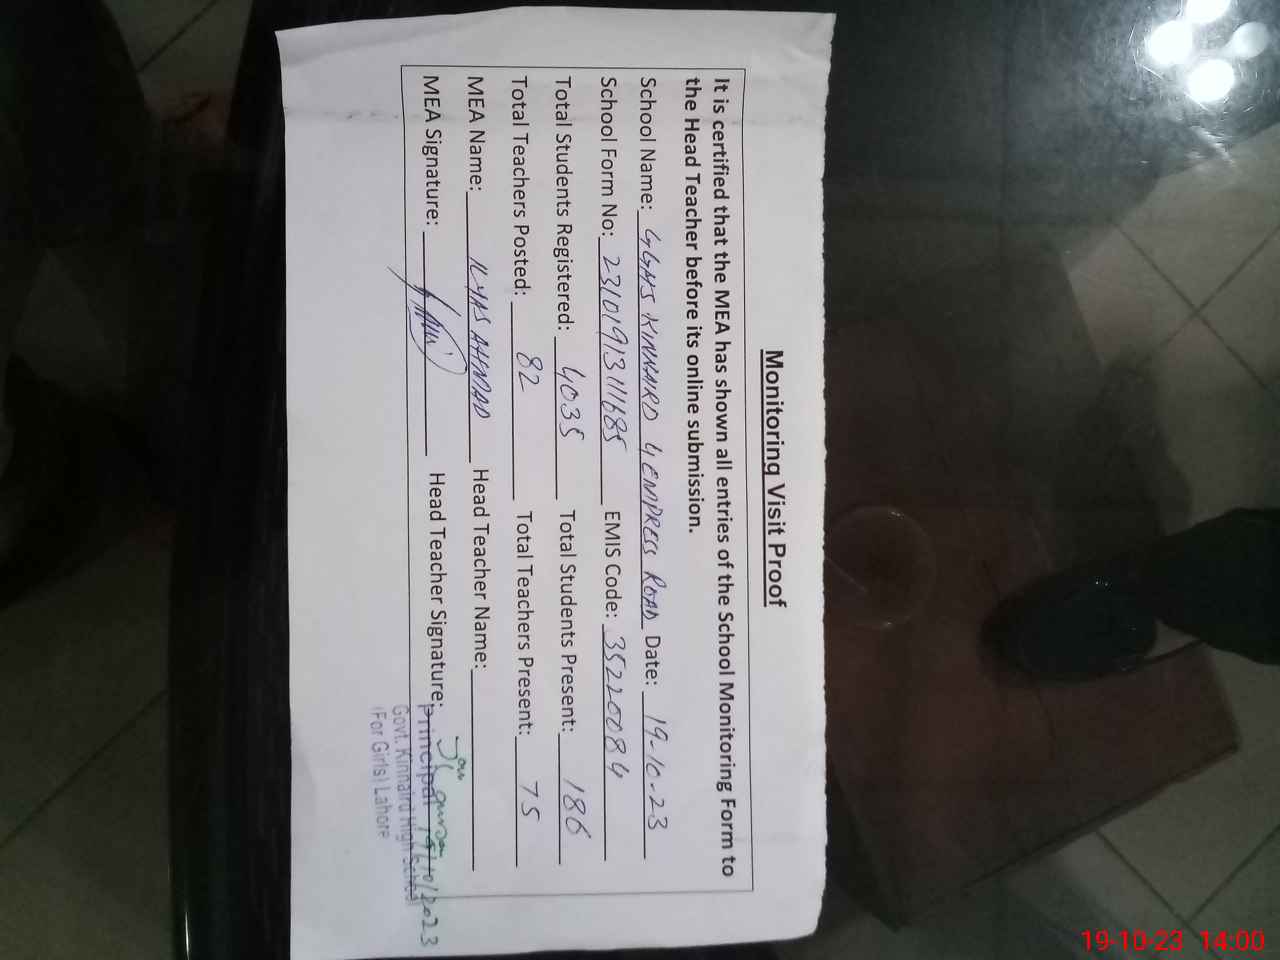 Monitoring Visit Proof
It is certified that the MEA has shown all entries of the School Monitoring Form to
the Head Teacher before its online submission.
School Name: GGHS KINNAIRD 4 EMPRESS ROAD Date: 19-10-23
School Form No: 2310191311685 EMIS Code: 35220084
Total Students Registered: 4035 Total Students Present: 186
Total Teachers Posted: 82 Total Teachers Present: 75
MEA Name: ILYAS AHMAD Head Teacher Name:
MEA Signature: Head Teacher Signature:
19/10/2023
Principal
Govt. Kinnaird High School
(For Girls) Lahore
19-10-23 14:00